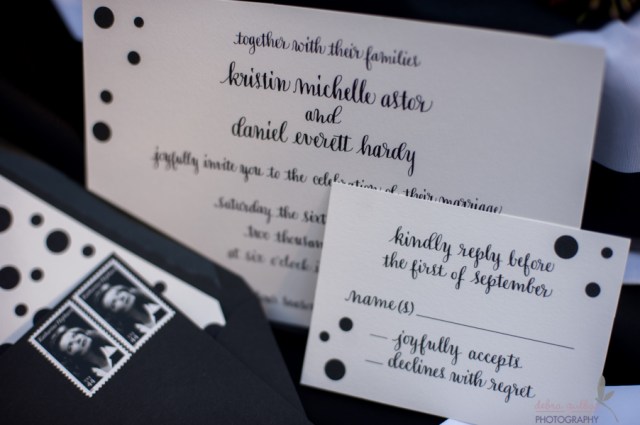 together with their families
kristin michelle astor
and
daniel everett hardy
joyfully invite you to the celebration of their marriage
saturday the sixt
two thousan
at six o'clock i
kindly reply before
the first of september
name(s)
joyfully accepts
declines with regret
PHOTOGRAPHY